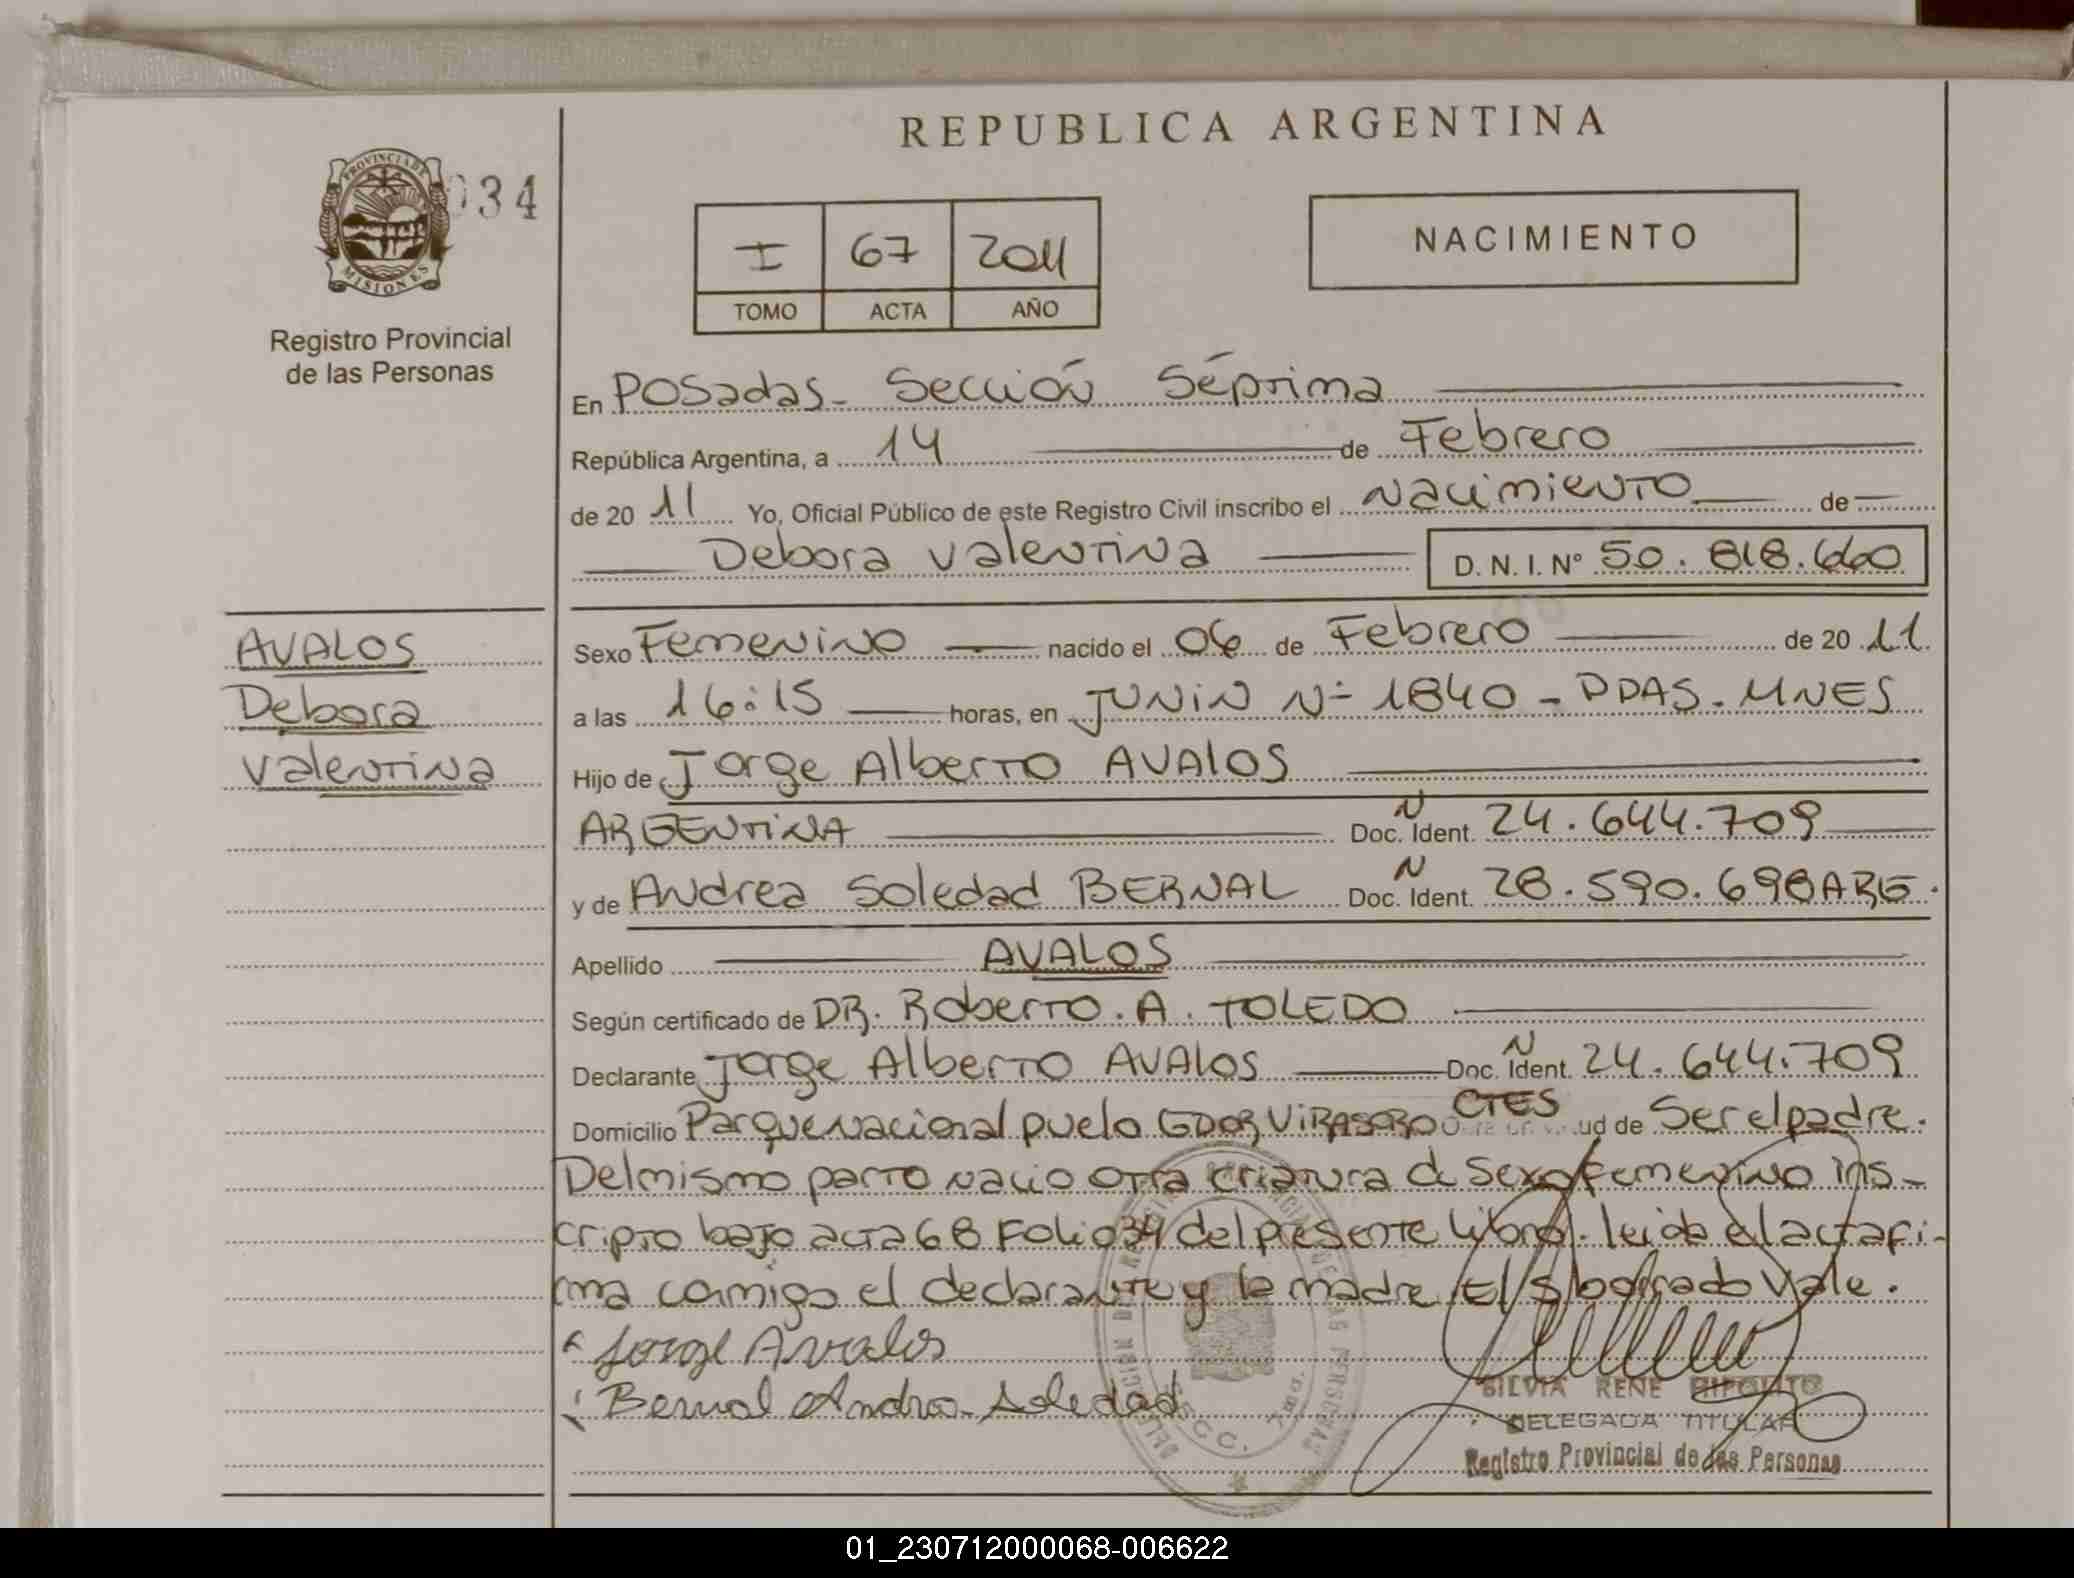 REPUBLICA ARGENTINA
PROVINCIA DE
MISIONES
034
Registro Provincial
de las Personas
I 67 2011
TOMO ACTA AÑO
NACIMIENTO
En Posadas - Sección Séptima
República Argentina, a 14 de Febrero
de 20 11 Yo, Oficial Público de este Registro Civil inscribo el Nacimiento de
Debora Valentina D. N. I. Nº 50.818.660
AVALOS
Debora
Valentina
Sexo Femenino nacido el 06 de Febrero de 20 11.
a las 16:15 horas, en JUNIN Nº 1840 - PDAS. MNES
Hijo de Jorge Alberto AVALOS
ARGENTINA Doc. N Ident. 24.644.709
y de Andrea Soledad BERNAL Doc. N Ident. 28.590.698 ARG.
Apellido AVALOS
Según certificado de DR. Roberto. A. TOLEDO
Declarante Jorge Alberto AVALOS Doc. N Ident. 24.644.709
Domicilio Parque nacional puelo GDOR VIRASORO CTES ud de Ser el padre.
Del mismo parto nacio otra criatura de sexo femenino ins-
cripto bajo acta 68 Folio 34 del presente libro. leida el acta fi-
rma conmigo el declarante y la madre. El s/borrado Vale.
Jorge Avalos
Bernal Andrea Soledad
SILVIA RENE
DELEGADA TITULAR
Registro Provincial de las Personas
01_230712000068-006622